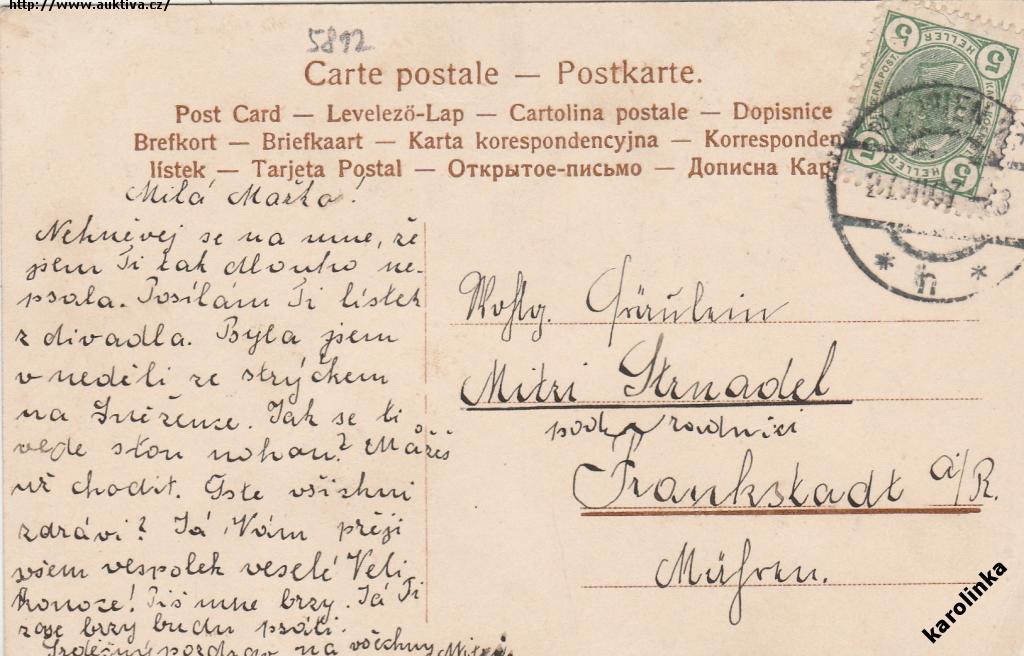 http://www.auktiva.cz/
5812
Carte postale — Postkarte.
Post Card — Levelező-Lap — Cartolina postale — Dopisnice
Brefkort — Briefkaart — Karta korespondencyjna — Korresponden
lístek — Tarjeta Postal — Открытое-письмо — Дописна Кар
5 HELLER 5
5 HELLER 5
WIEN
* h *
Milá Mařko!
Nehněvej se na mne, že
jsem Ti tak dlouho ne-
psala. Posílám Ti lístek
z divadla. Byla jsem
v neděli ze strýčkem
na Sněžence. Jak se ti
vede stou nohou? Můžeš
už chodit. Jste všichni
zdrávi? Já Vám přeji
všem vespolek veselé Veli
konoce! Piš mne brzy. Já Ti
zase brzy budu psáti.
Srdečný pozdrav na všechny
Wohlg. Fräulein
Mitzi Strnadel
pod radnicí
Frankstadt a/R.
Mähren.
karolinka